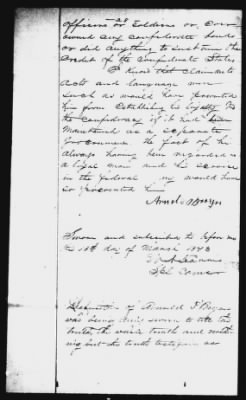 officers as Soldiers or Ever
owned any confederate bonds
or did anything to sustain the
Credit of the Confederate States
I know that claimants
acts and language were
such as would have prevented
him from Establishing his loyalty to
the confederacy if it had been
Maintained as a separate
Government the fact of his
always having been regarded as
a loyal man and his services
in the federal would have
so prevented him
Sworn and subscribed to before me
this 16th day of March 1873
Spl Comr
Deposition of Arnold
who being duly sworn to tell the
truth, the whole truth and noth
ing but the truth testifies as